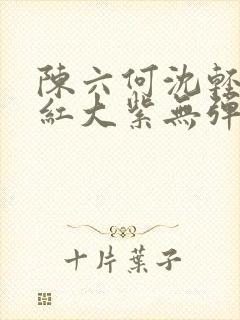 陳六何沈輕
紅大紫無彈
十片葉子